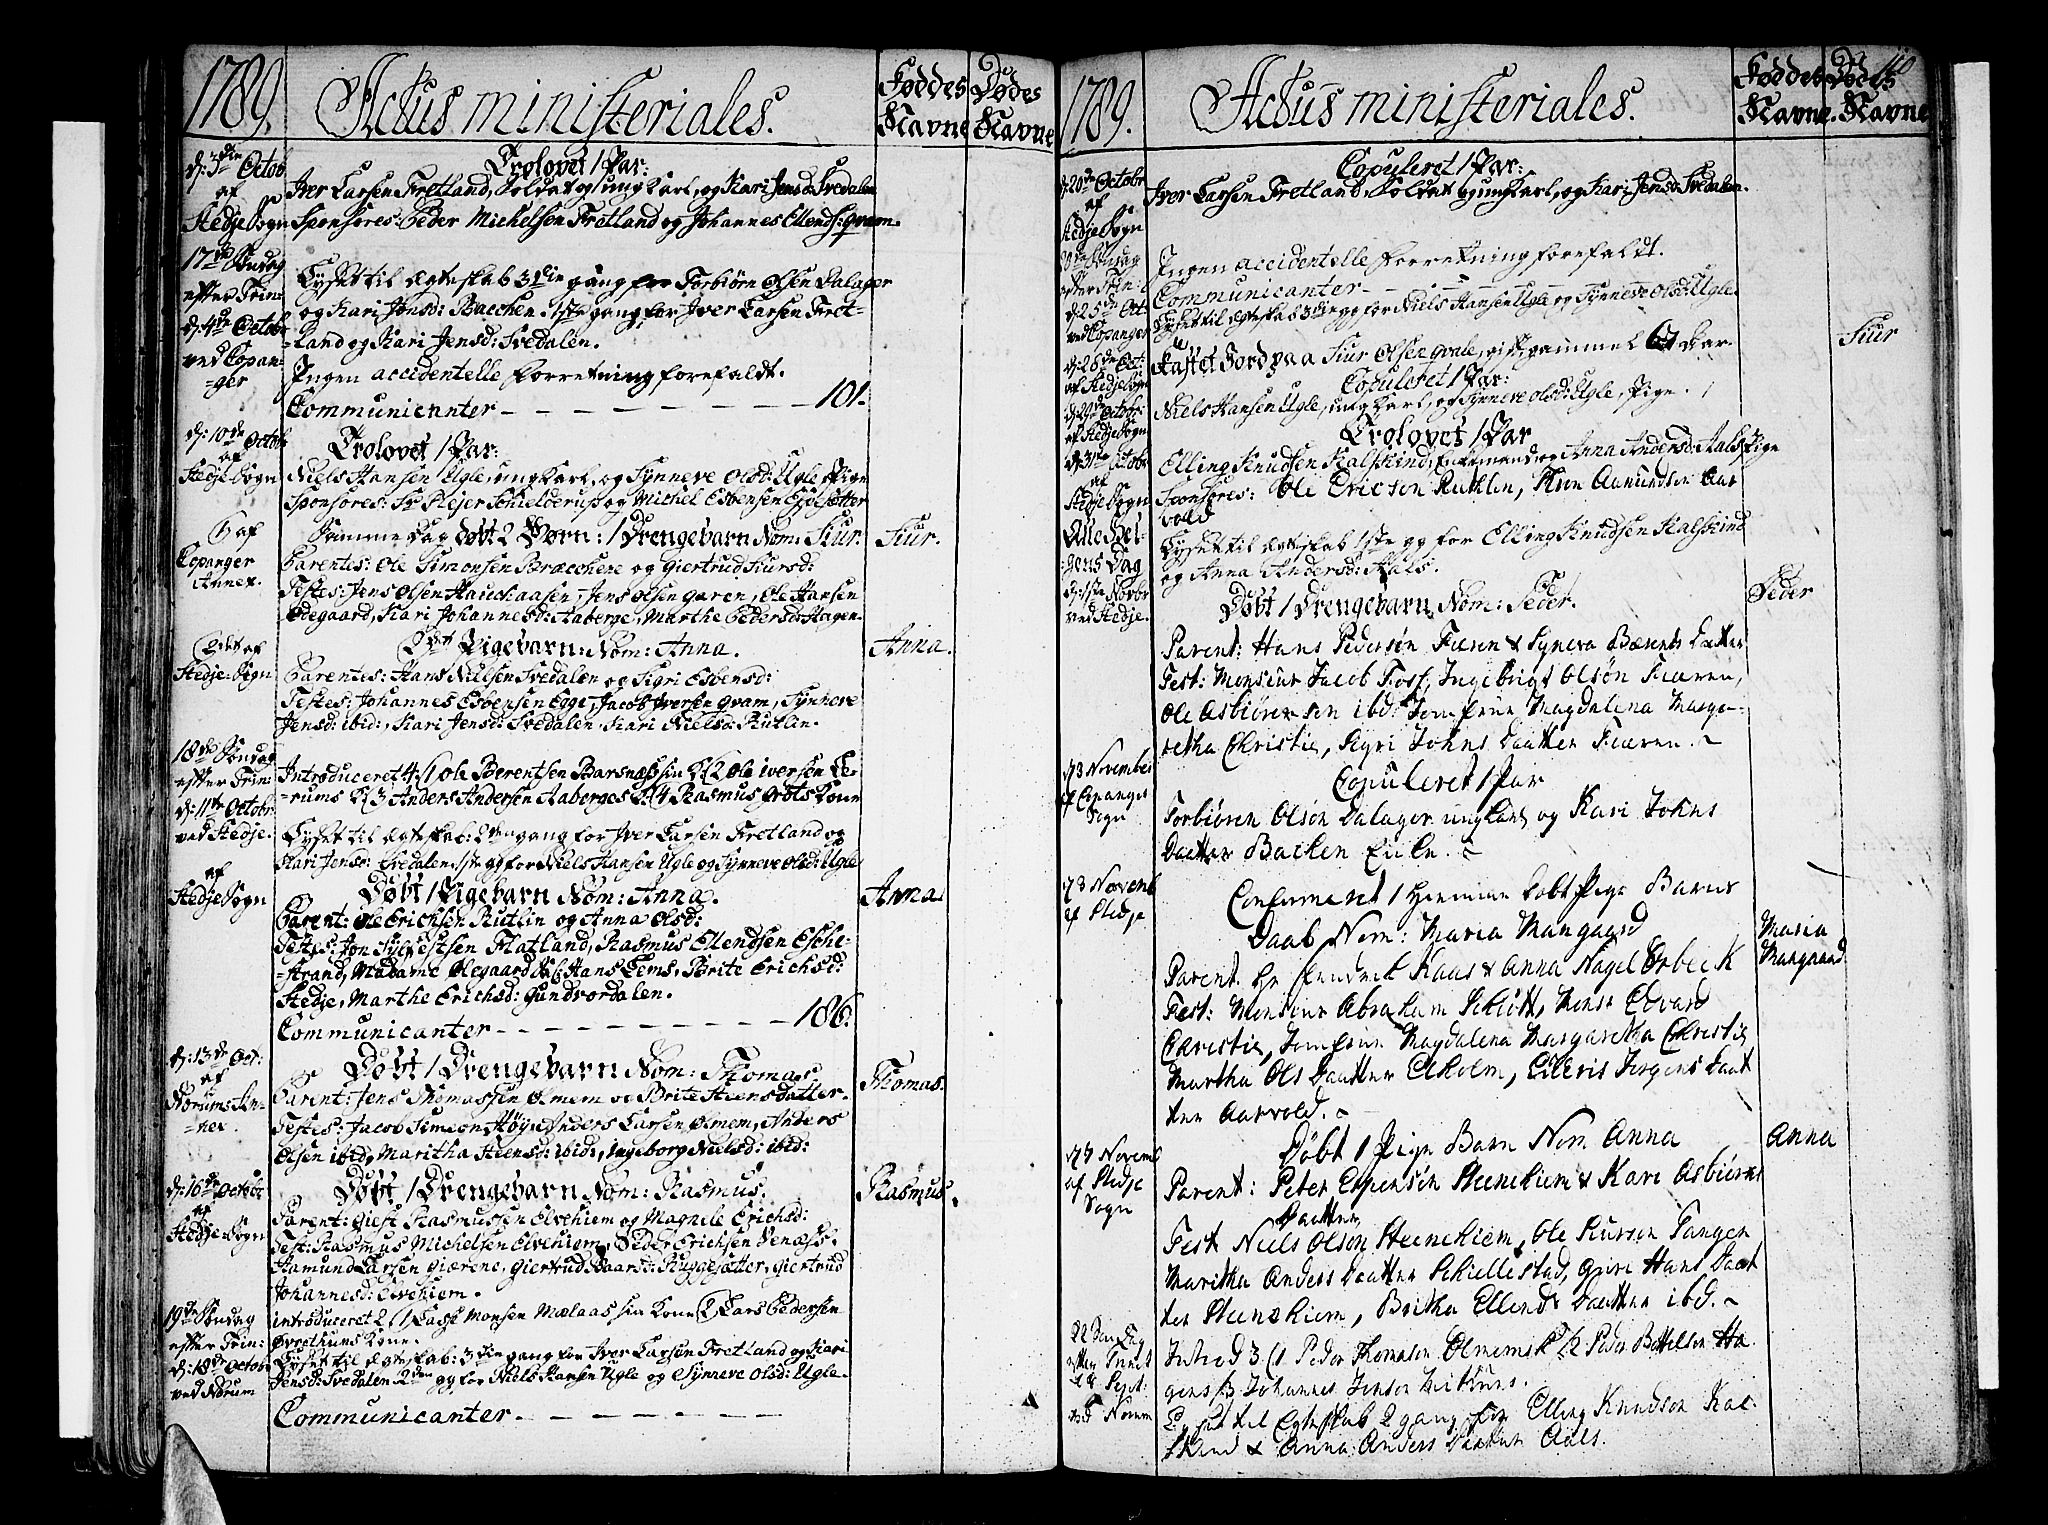 1789. Actus ministeriales. Føddes Navne Dødes Navne
d: 3die Octob. af Stedje Sogn
Trolovet 1 Par:
Iver Larsen Fretland, Soldat og ungkarl, og Kari Jensd: Svedalen
Sponsores: Peder Michelsen Fretland og Johannes Ellends: Qvam.
17de Søndag efter Trin: d: 4de Octobr ved Copan-
=ger
Lyset til Ægteskab 3die gang for Torbiørn Olsen Dalager
og Kari Jonsd: Bacchen. 1ste gang for Iver Larsen Fret-
=land og Kari Jensd: Svedalen.
Ingen accidentelle Forretning forefaldt.
Communicanter - - - - - - - - 101.
d: 10de Octobr af Stedje Sogn
Trolovet 1 Par:
Niels Hansen Ugle, ungkarl, og Synneve Olsd: Ugle Pige
Sponsores: Sr Plejer Schielderup og Michel Esbensen
af Copanger Annex.
Samme Dag døbt 2 Børn: 1 Drengebarn Nom: Siur. Siur.
Parentes: Ole Simonsen Bracchene og Giertrud Siursd:
Testes: Jens Olsen Hauchaasen, Jens Olsen Qaren, Ole Hansen
Ødegaard, Kari Johannesd: Aaberge, Marthe Pedersd: Hagen.
Stedje Sogn
1 Pigebarn: Nom: Anna. Anna.
Parentes: Hans Nielsen Svedalen og Sigri Esbensd:
Testes: Johannes Esbensen Egge, Jacob Iversen Qvam, Synneve
Jensd: ibid:, Kari Jensd: Svedalen, Kari Nielsd: Rutlin.
18de Søndag efter Trin: d: 11te Octobr ved Stedje.
Introduceret 4. (1 Ole Berentsen Barsnæs sin K: (2 Ole Iversen Le-
=rums K: (3 Anders Andersen Aaberges K: (4 Rasmus Kone
Lyset til Ægteskab: 2den gang for Iver Larsen Fretland og
Kari Jensd: Svedalen. 1ste gg for Niels Hansen Ugle og Synneve Olsd: Ugle
af Stedje Sogn
Døbt 1 Pigebarn Nom: Anna. Anna
Parent: Ole Erichsen Rutlin og Anna Olsd:
Testes: Jon Sylfestsen Flatland, Rasmus Ellendsen Esche-
=strand, Madame Ølegaard Sal: Hans Lems, Brite Erichsd:
Stedje, Marthe Erichsd: Gundvordalen.
Communicanter - - - - - - - - - 186.
d: 13de Oct: af Norums An-
=nex.
Døbt 1 Drengebarn Nom: Thomas. Thomas.
Parent: Jens Thomassen Olmem og Brite Steensdatter.
Testes: Jacob Simeons Høyn, Anders Larsen Olmem, Anders
Olsen ibid, Maritha Steensd: ibid:, Ingeborg Nielsd: ibid:
d: 16de Octobr af Stedje Sogn
Døbt 1 Drengebarn Nom: Rasmus. Rasmus.
Parent: Giest Rasmussen Elvehiem og Magnele Erichsd:
Test: Rasmus Michelsen Elvehiem, Peder Erichsen Venæs:
Aamund Larsen Giærene, Giertrud Baarsd: Ruggesætter, Giertrud
Johannesd: Elvehiem.
19de Søndag efter Trin: d: 18de Octobr ved Norum
introduceret 2 (1 Lasse Monsen Mælaas sin Kone (2 Lars Pedersen
Øvrethuns Kone.
Lyset til Ægteskab: 3die gang for Iver Larsen Fretland og Kari
Jensd: Svedalen 2den gg for Niels Hansen Ugle og Synneve Olsd: Ugle.
Communicanter. - - - - - -
1789. Actus ministeriales. Føddes Navne. Dødes Navne 110
d: 20de Octobr af Stedje Sogn
Copuleret 1 Par:
Iver Larsen Fretland, Soldat og ungkarl, og Kari Jensd: Svedalen.
20de Søndag efter Trin: d: 25de Oct. ved Copanger
Ingen accidentelle Forretning forefaldt.
Communicanter - - - - -
Lyset til Ægteskab 3die gg for Niels Hansen Ugle og Synneve Olsd: Ugle.
d: 28de Oct: af Stedje Sogn
Kastet Jord paa Siur Olsen Qvale, gift, gammel 67 Aar. Siur
d: 29de Octobr: af Stedje Sogn
Copuleret 1 Par:
Niels Hansen Ugle, ungkarl, og Synneve Olsd: Ugle, Pige.
d: 31te Octobr af Stedje Sogn
Trolovet 1 Par
Elling Knudsen Kalskind, Enkemand og Anna Andersd: Aals Pige
Sponsores: Ole Ericsen Rutlen, Aamundsen Aar
vold
Alle Hel-
gens Dag d: 1ste Novbr ved Stedje.
Lyset til Ægteskab 1ste gg for Elling Knudsen Kalskind
og Anna Andersd: Aals.
Døbt 1 Drengebarn, Nom: Peder. Peder
Parent: Hans Pedersøn Fiæren & Syneva Bærents Datter
Test: Monsieur Jacob Foss, Ingebrigt Olsøn Fiæren,
Ole Asbiørensen ibd: Jomfrue Magdalena Marga-
retha Christie, Sigri Johns Daatter Fiæren.
d 3 November af Copanger Sogn
Copuleret 1 Par
Torbiøren Olsøn Dalager ungkarl og Kari Johns
Daatter Backen
d 3 Novemb af Stedje
Confirmeret 1 hiemme døbt Pige Barns
Daab Nom: Maria Mangaard Maria Mangaard
Parent. Hr Hendrik Kaas & Anna Nagel Ørbeck
Test: Monsieur Abraham Schiøtt, Mons: Edvard
Christie, Jomfrue Magdalena Margaretha Christie,
Martha Ols Daatter Ekholm, Jørgens Daat
ter Aarvold.
d 7 Novemb af Stedje Sogn
Døbt 1 Pige Barn Nom. Anna Anna
Parent: Peter Espensøn Steenehiem & Kari Asbiørns
Daatter
Test Niels Olsøn Steenehiem, Ole Tangen
Maritha Anders Daatter Skiellestad, Guri Hans Daat
ter Steenehiem, Britha Ellends Daatter ibd.
22 Søndag efter Trinit d 8 ved Norum
Introd 3. (1 Peder Thomasøn Olmems K (2 Peder Bottelsen Ha
gens (3 Johannes Jensøn
Lyset til Egteskab 2 gang for Elling Knudsøn Kal
skind & Anna Anders Daatter Aals.